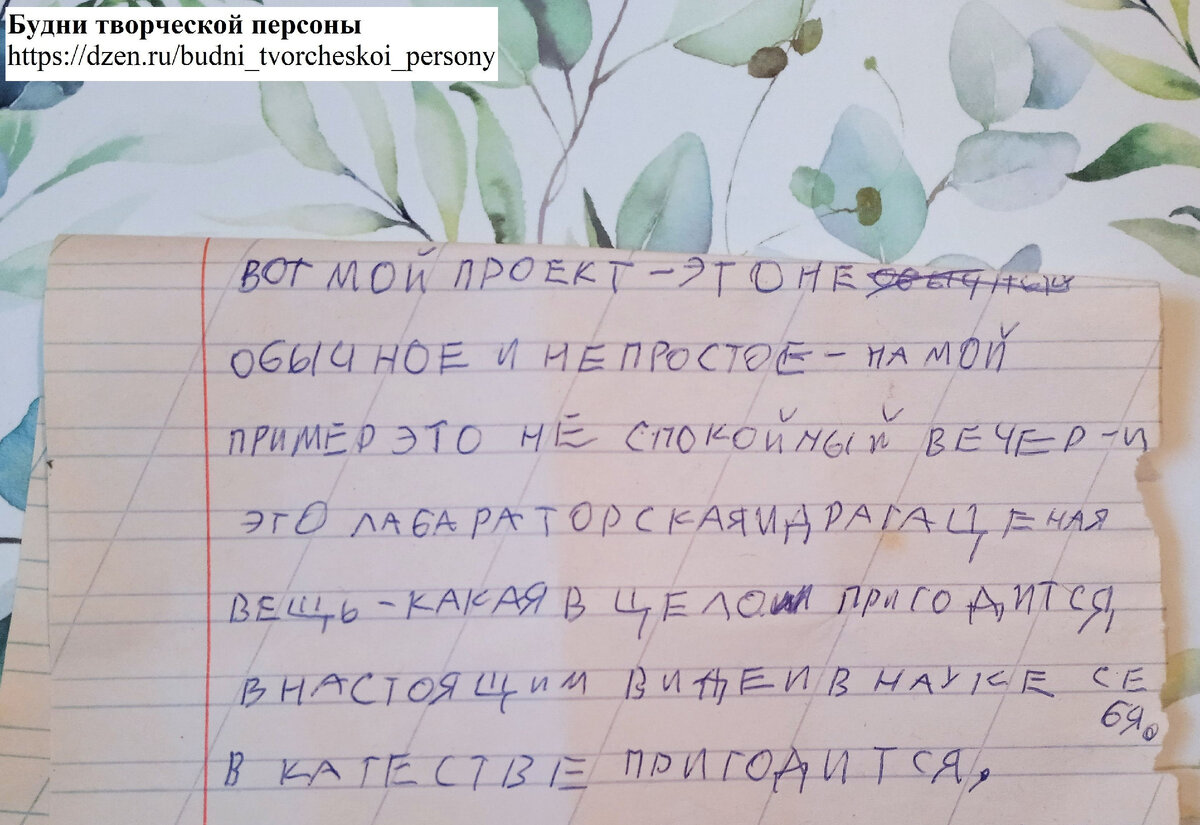 Будни творческой персоны
https://dzen.ru/budni_tvorcheskoi_persony
ВОТ МОЙ ПРОЕКТ – ЭТО НЕ ОБЫЧНЫЙ
ОБЫЧНОЕ И НЕ ПРОСТОЕ – НА МОЙ
ПРИМЕР ЭТО НЕ СПОКОЙНЫЙ ВЕЧЕР – И
ЭТО ЛАБАРАТОРСКАЯ И ДРАГАЦЕНАЯ
ВЕЩЬ – КАКАЯ В ЦЕЛОМ ПРИГОДИТСЯ,
В НАСТОЯЩИМ ВИДЕ И В НАУКЕ СЕ
БЯ.
В КАТЕСТВЕ ПРИГОДИТСЯ,